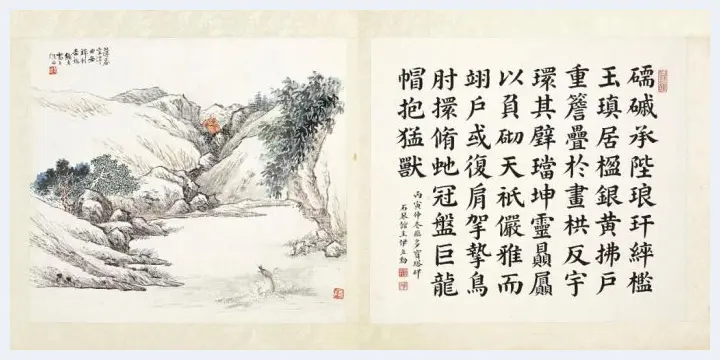 碝磩承陛琅玕綷檻
玉瑱居楹銀黃拂戶
重簷疊於畫栱反宇
環其璧璫坤靈贔屭
以負砌天祇儼雅而
翊戶或復肩挐摯鳥
肘擐脩虵冠盤巨龍
帽抱猛獸
丙寅仲冬臨多寶塔碑
石琴館主伊立勳